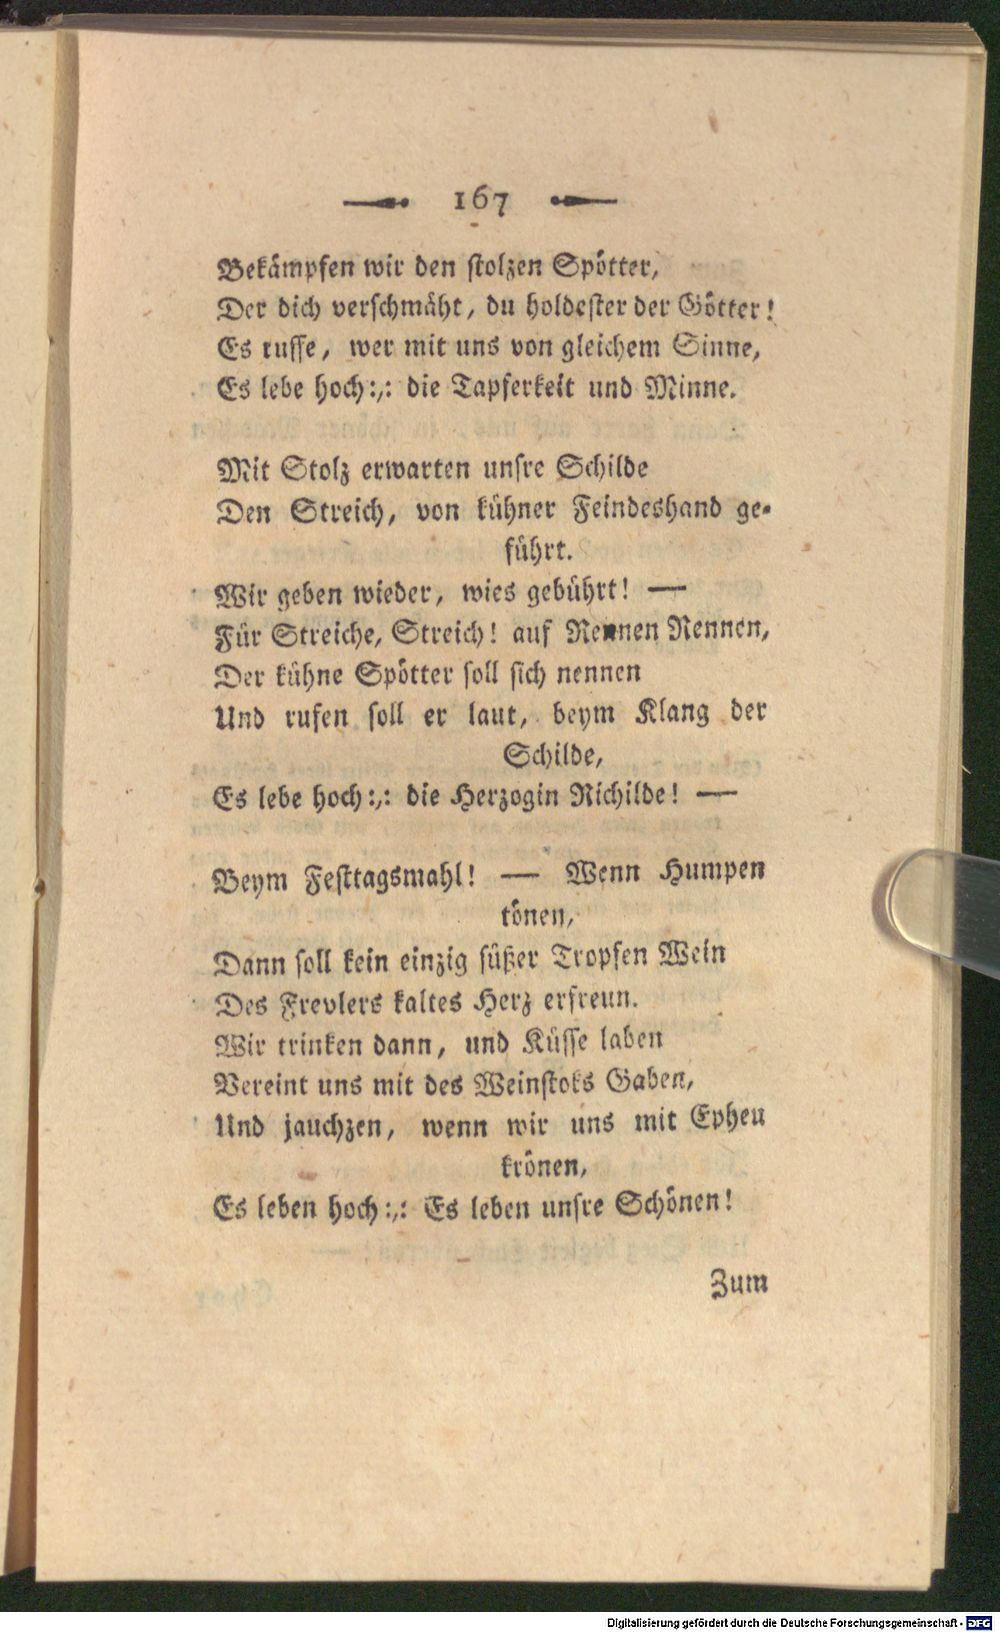 167
Bekämpfen wir den stolzen Spötter,
Der dich verschmäht, du holdester der Götter!
Es ruffe, wer mit uns von gleichem Sinne,
Es lebe hoch:,: die Tapferkeit und Minne.
Mit Stolz erwarten unsre Schilde
Den Streich, von kühner Feindeshand ge-
führt.
Wir geben wieder, wies gebührt! —
Für Streiche, Streich! auf Rennen Rennen,
Der kühne Spötter soll sich nennen
Und rufen soll er laut, beym Klang der
Schilde,
Es lebe hoch:,: die Herzogin Richilde! —
Beym Festtagsmahl! — Wenn Humpen
tönen,
Dann soll kein einzig süßer Tropfen Wein
Des Frevlers kaltes Herz erfreun.
Wir trinken dann, und Küsse laben
Vereint uns mit des Weinstoks Gaben,
Und jauchzen, wenn wir uns mit Epheu
krönen,
Es leben hoch:,: Es leben unsre Schönen!
Zum
Digitalisierung gefördert durch die Deutsche Forschungsgemeinschaft - DFG